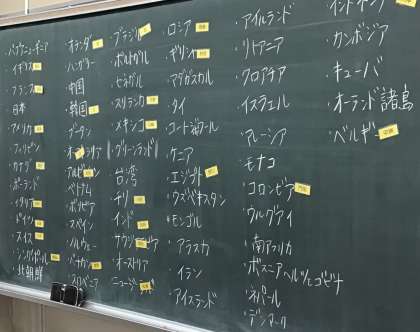 ・パプアニューギニア
・イギリス
・フランス
・日本
・アメリカ
・フィリピン
・カナダ
・ポーランド
・イタリア
・ドイツ
・スイス
・シンガポール
・北朝鮮
・オランダ
・ハンガリー
・中国
・韓国
・ブータン
・オーストラリア
・アルゼンチン
・ベトナム
・ボリビア
・スペイン
・ノルウェー
・バチカン
・スロベニア
・ブラジル
・ポルトガル
・セネガル
・スリランカ
・メキシコ
・グリーンランド
・台湾
・チリ
・インド
・サウジアラビア
・オーストリア
・ニュージーランド
・ロシア
・ギリシャ
・マダガスカル
・タイ
・コートジボワール
・ケニア
・エジプト
・ウズベキスタン
・モンゴル
・アラスカ
・イラン
・アイスランド
・アイルランド
・リトアニア
・クロアチア
・イスラエル
・マレーシア
・モナコ
・コロンビア
・ウルグアイ
・南アフリカ
・ボスニアヘルツェゴビナ
・ネパール
・デンマーク
・インドネシア
・カンボジア
・キューバ
・オーランド諸島
・ベルギー